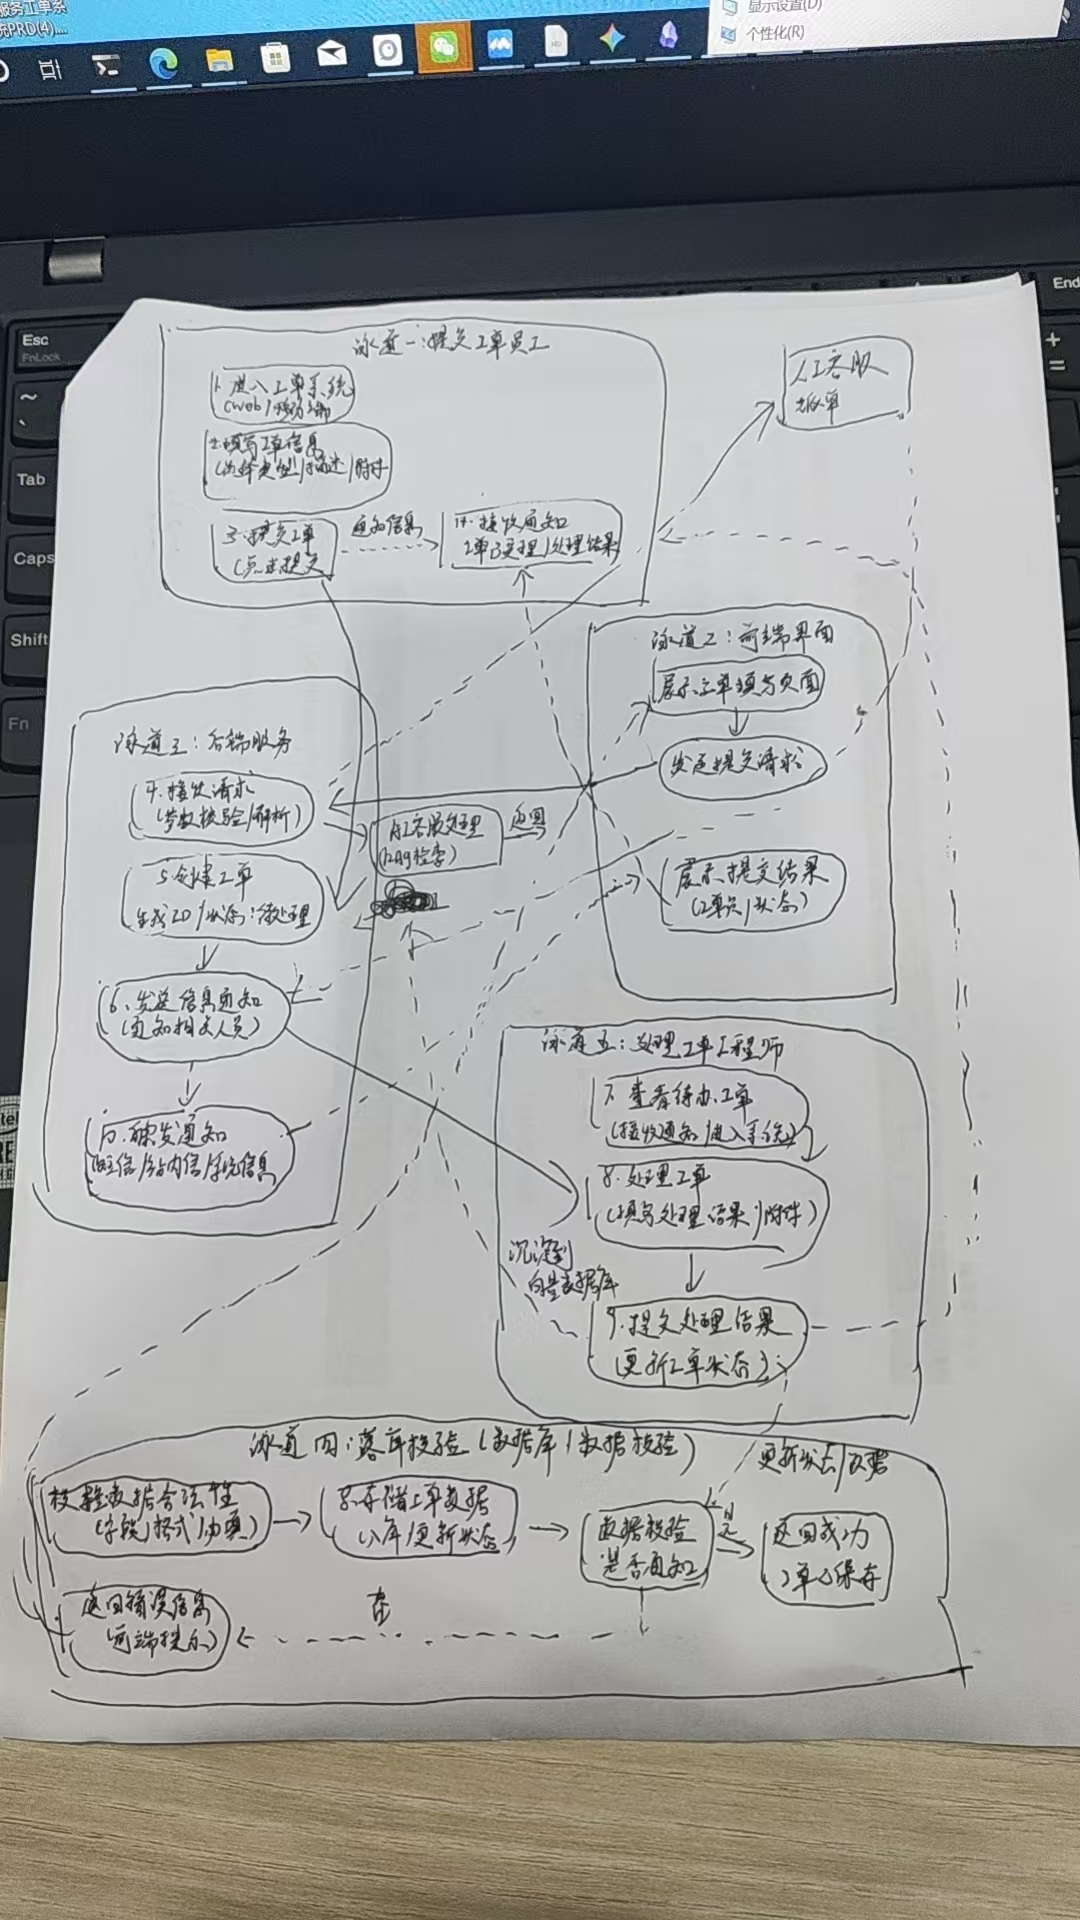 服务工单系
统PRD(4)....
显示设置(D)
个性化(R)
Esc
FnLock
~
Tab
Caps
Shift
Fn
End
+
=
泳道一:提交工单员工
1. 进入工单系统
(web/移动端
2.填写工单信息
(选择类型/描述/附件
3.提交工单
(点击提交
通知信息
接收通知
工单已受理/处理结果
人工客服
泳道二:前端界面
展示工单填写页面
发送提交请求
展示提交结果
(工单号/状态)
泳道三:后端服务
4.接收请求
(参数校验/解析)
AI客服处理
(RAG检索)
返回
5.创建工单
生成ID/状态:待处理
6、发送信息通知
(通知相关人员)
10.触发通知
短信/站内信/系统信息
泳道五:处理工单工程师
7.查看待办工单
(接收通知/进入系统)
8.处理工单
(填写处理结果/附件)
沉淀到
向量数据库
9.提交处理结果
(更新工单状态)
泳道四:落库校验(数据库/数据校验)
更新状态/数据
校验数据合法性
(字段/格式/必填)
8.存储工单数据
(入库/更新状态)
数据校验
是否通知
返回成功
工单已保存
返回错误信息
(前端提示)
否